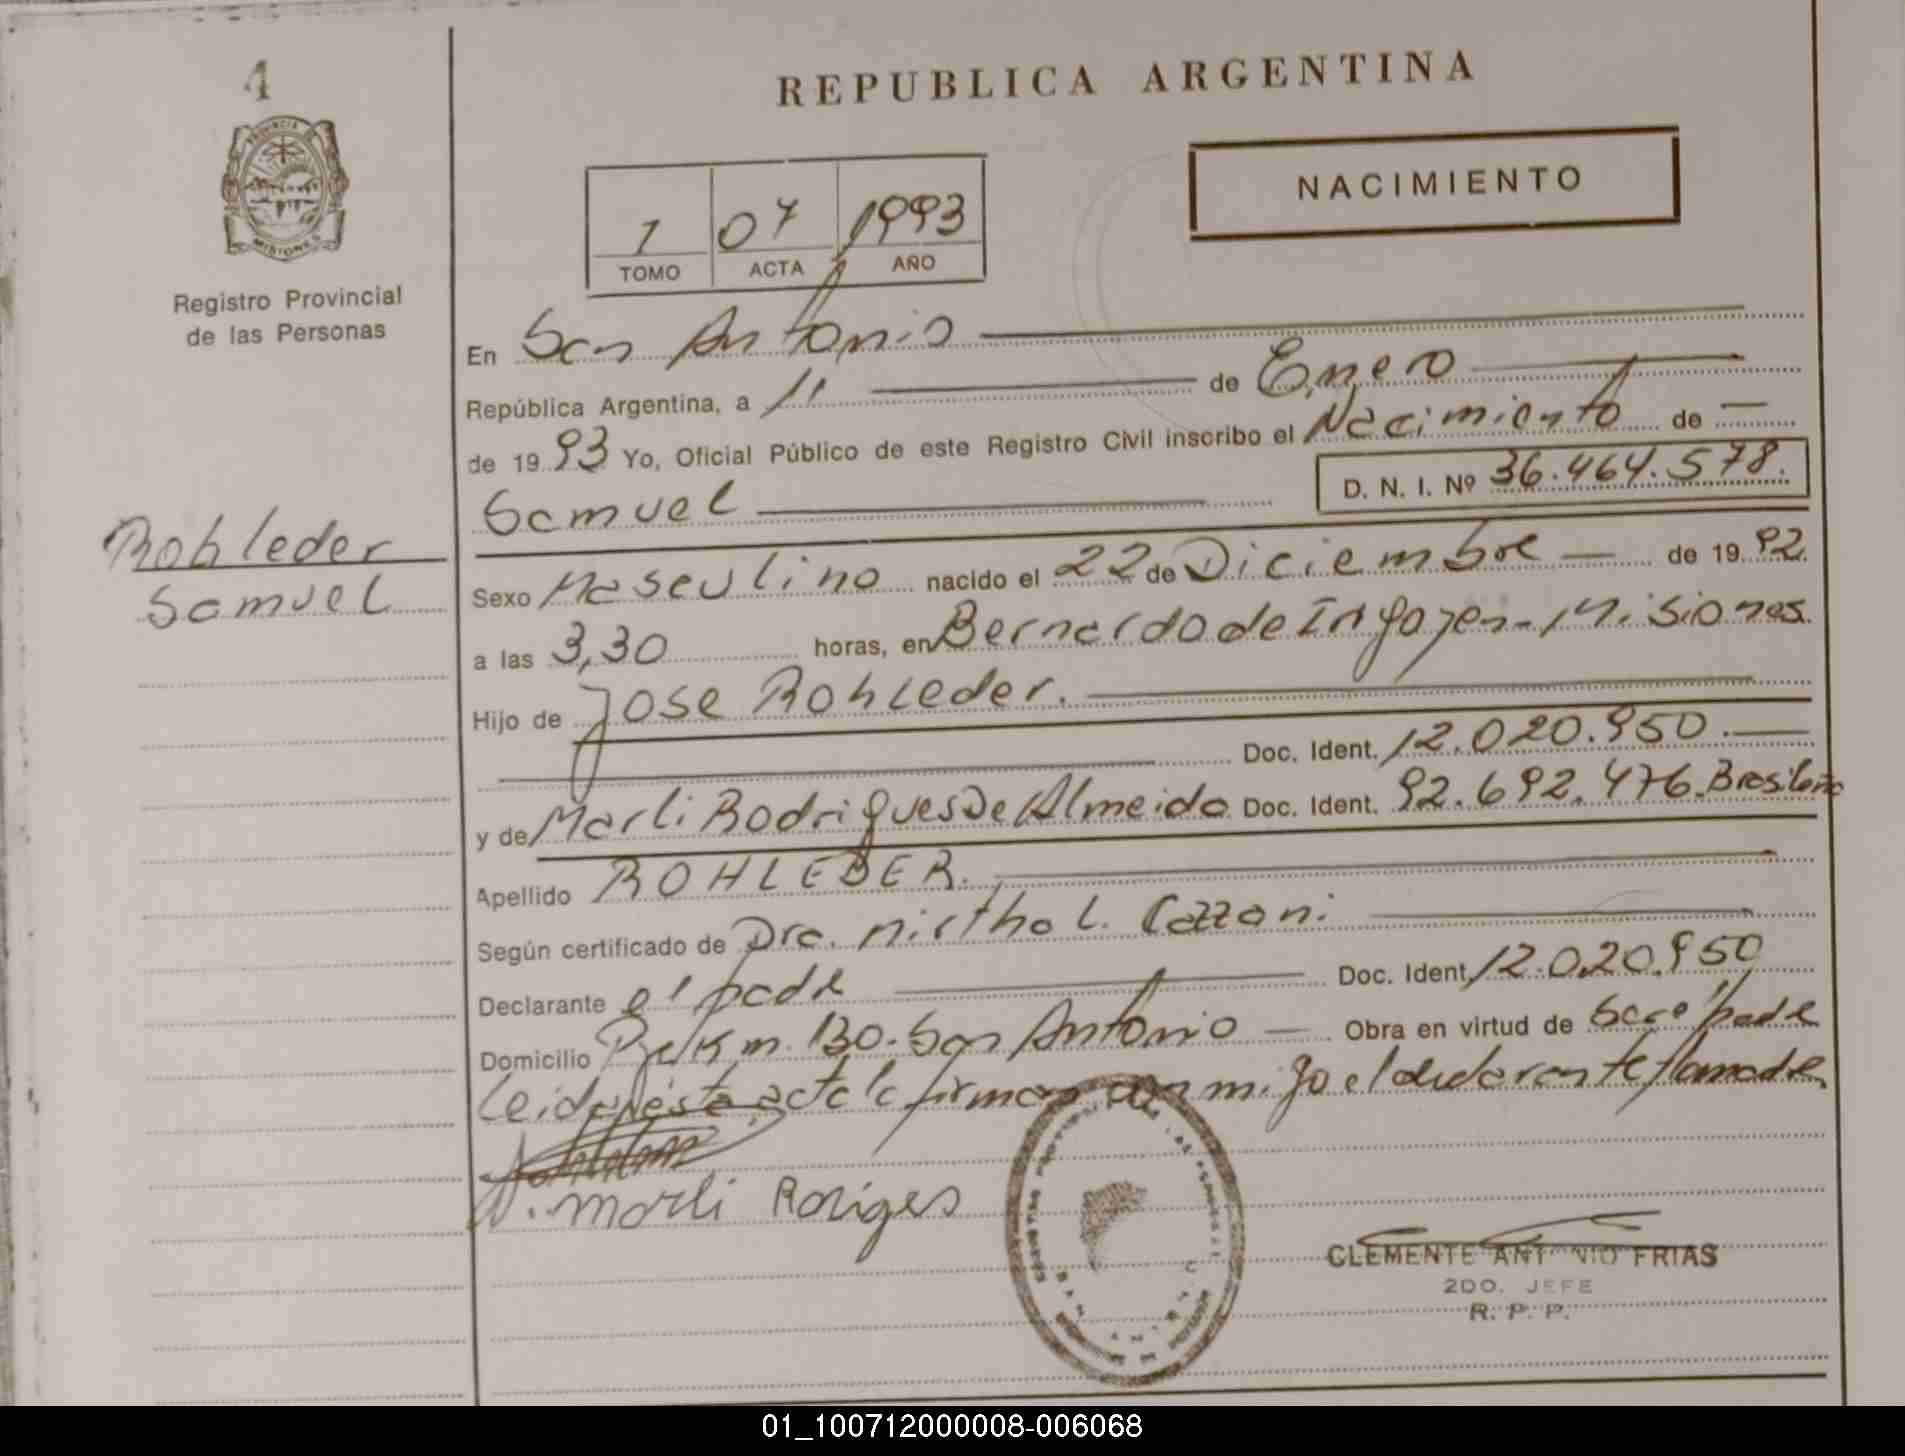 4
REPUBLICA ARGENTINA
PROVINCIA DE
MISIONES
NACIMIENTO
1 07 1993
TOMO ACTA AÑO
Registro Provincial
de las Personas
En San Antonio
República Argentina, a 11 de Enero
de 1993 Yo, Oficial Público de este Registro Civil inscribo el Nacimiento de
Samuel D. N. I. Nº 36.464.578.
Rohleder
Samuel
Sexo Masculino nacido el 22 de Diciembre de 1992.
a las 3,30 horas, en Bernardo de Irigoyen - Misiones.
Hijo de Jose Rohleder.
Doc. Ident. 12.020.950.
y de Marli Rodrigues De Almeida Doc. Ident. 92.692.476. Brasileña
Apellido ROHLEDER.
Según certificado de Dra. Mirtha L. Cazzani
Declarante el padre Doc. Ident. 12.020.950
Domicilio Pje Km. 130. San Antonio Obra en virtud de ser el padre
Leida esta acta la firman con migo el declarante y la madre
Marli Roriges
CLEMENTE ANTONIO FRIAS
2DO. JEFE
R. P. P.
01_100712000008-006068